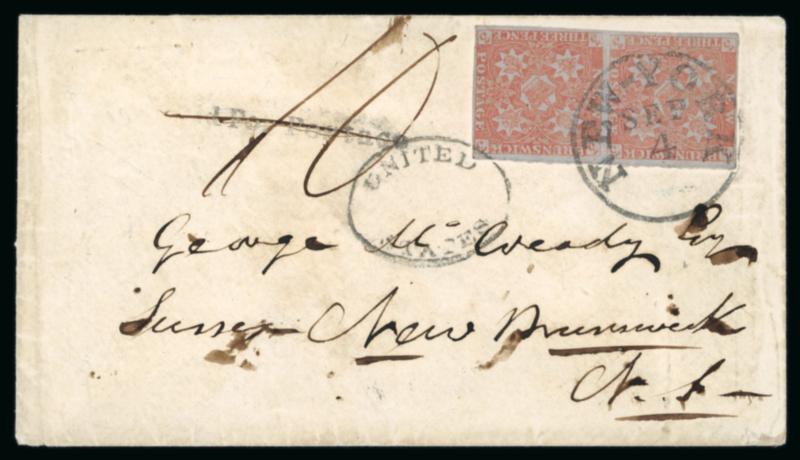 10
THREE PENCE THREE PENCE
POSTAGE
BRUNSWICK
NEW-YORK
SEP
4
UNITED
STATES
George McCready Esq
Sussex New Brunswick
N. S.